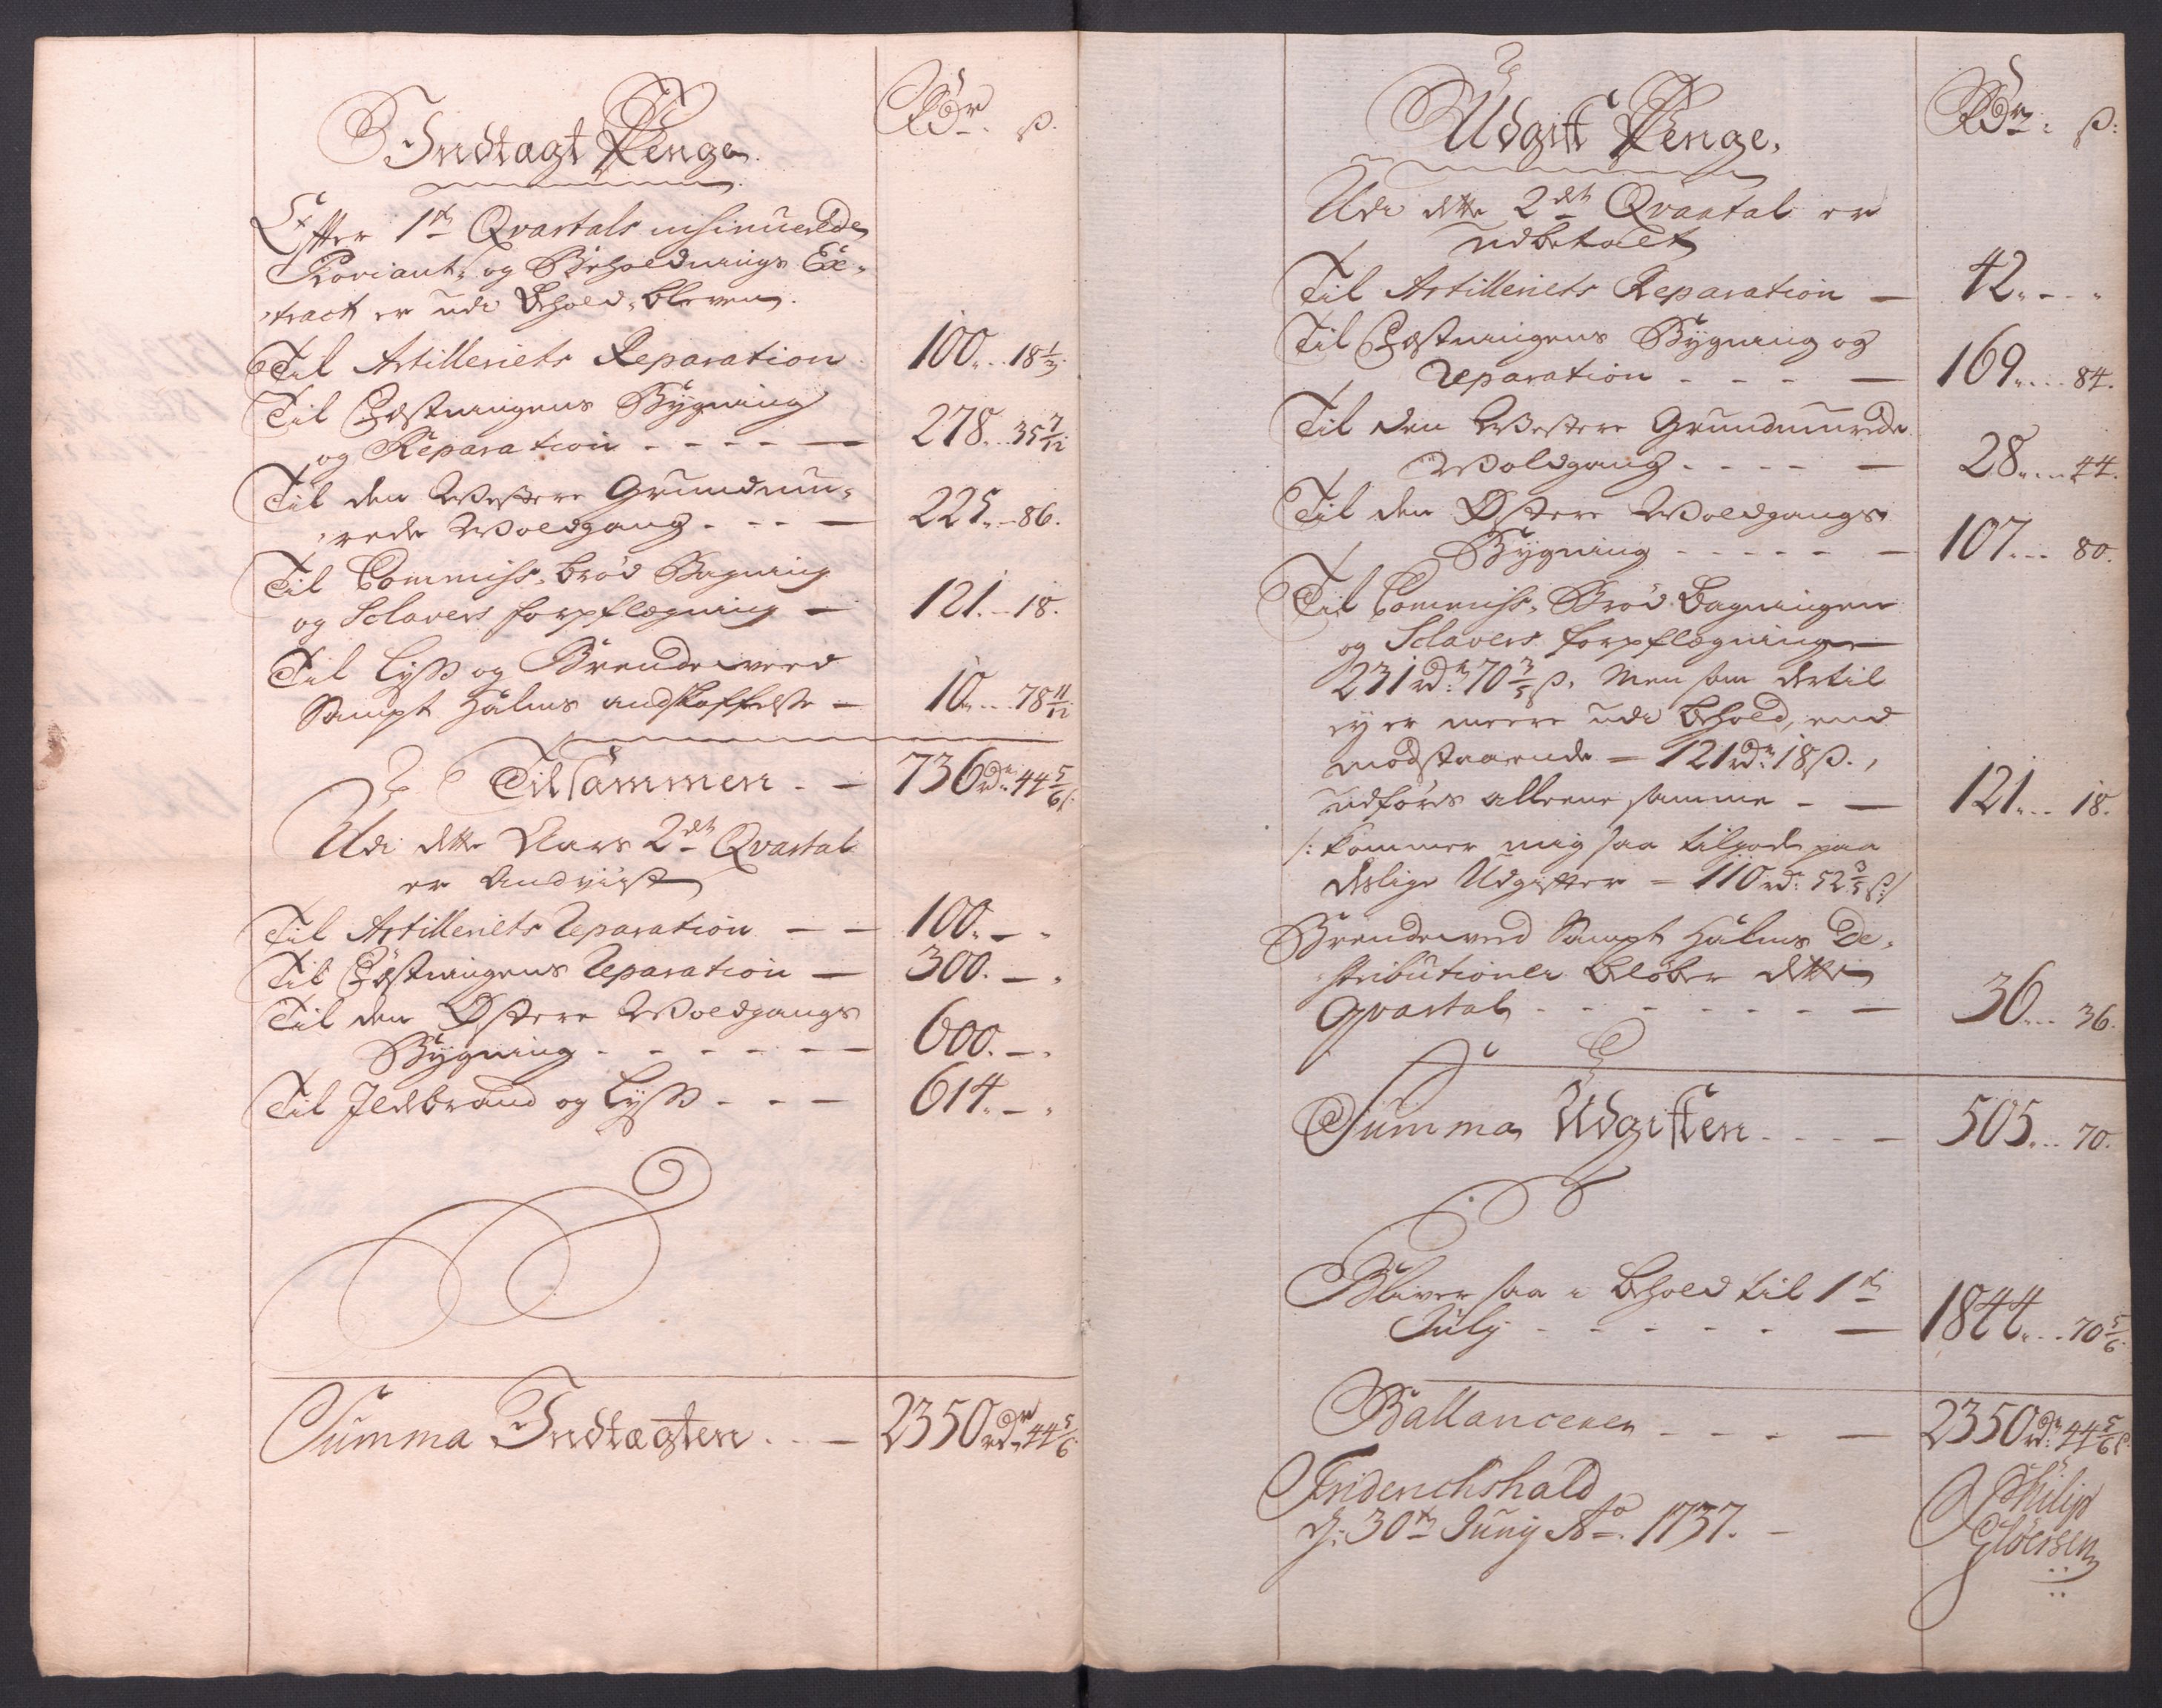 Indtægt Penge. Rdr. ß.
Efter 1te Qvartals insinuerede
Proviant- og Beholdnings Ex-
tract er udi Behold bleven.
Til Artilleriets Reparation 100. 18 1/3
Til Fæstningens Bygning
og Reparation - - - - 278. 35 7/12
Til den Westere Grundmu-
rede Woldgang. - - - 225. 86.
Til Commiss-brød Bagning
og Sclavers forpflægning - 121. 18.
Til Lyss og Brendeweed
Sampt Halms andskaffelse - 10. 78 11/12
Tilsammen. - 736 rdr 44 5/6 ß.
Udi dette Aars 2den Qvartal
er Andviist
Til Artilleriets Reparation - - 100. - .
Til Fæstningens Reparation - 300. - .
Til den Østere Woldgangs
Bygning - - - - - - 600. - .
Til Ildebrand og Lyss - - - 614. - .
Summa Indtægten. - 2350 rdr 44 5/6
Udgift Penge. Rdr: ß:
Udi dette 2det Qvartal er
udbetalt
Til Artilleriets Reparation - 42. - - .
Til Fæstningens Bygning og
Reparation - - - - 169. 84.
Til den Westere Grundmurede
Woldgang. - - - - 28. 44.
Til den Østere Woldgangs
Bygning - - - - - - 107. 80.
Til Commiss-Brød Bagningen
og Sclavers forpflægning
231 rdr 70 3/5 ß. Men som dertil
ey er meere udi behold, end
modstaaende - 121 rdr 18 ß.,
udføres alleene samme - - 121. 18.
/: kommer mig saa tilgode paa
deslige Udgifter = 110 rdr: 52 3/5 ß:/
Brendeweed Sampt Halms De-
stributioner beløber dette
Qvartal - - - - - - - 36. 36.
Summa Udgiften - - - - 505. 70.
Bliver saa i behold til 1te
July - - - - - - 1844. 70 5/6.
Ballancerer - - - - - 2350 rdr 44 5/6 ß.
Friderichshald
d: 30te Juny Ao. 1737. -
Philip
Gløersen